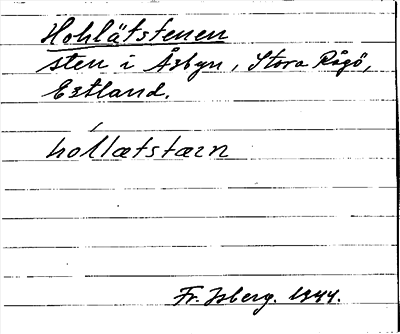 Hohlätstenen
sten i Åsbyn, Stora Rågö,
Estland.
hollætstærn
Fr. Isberg. 1944.